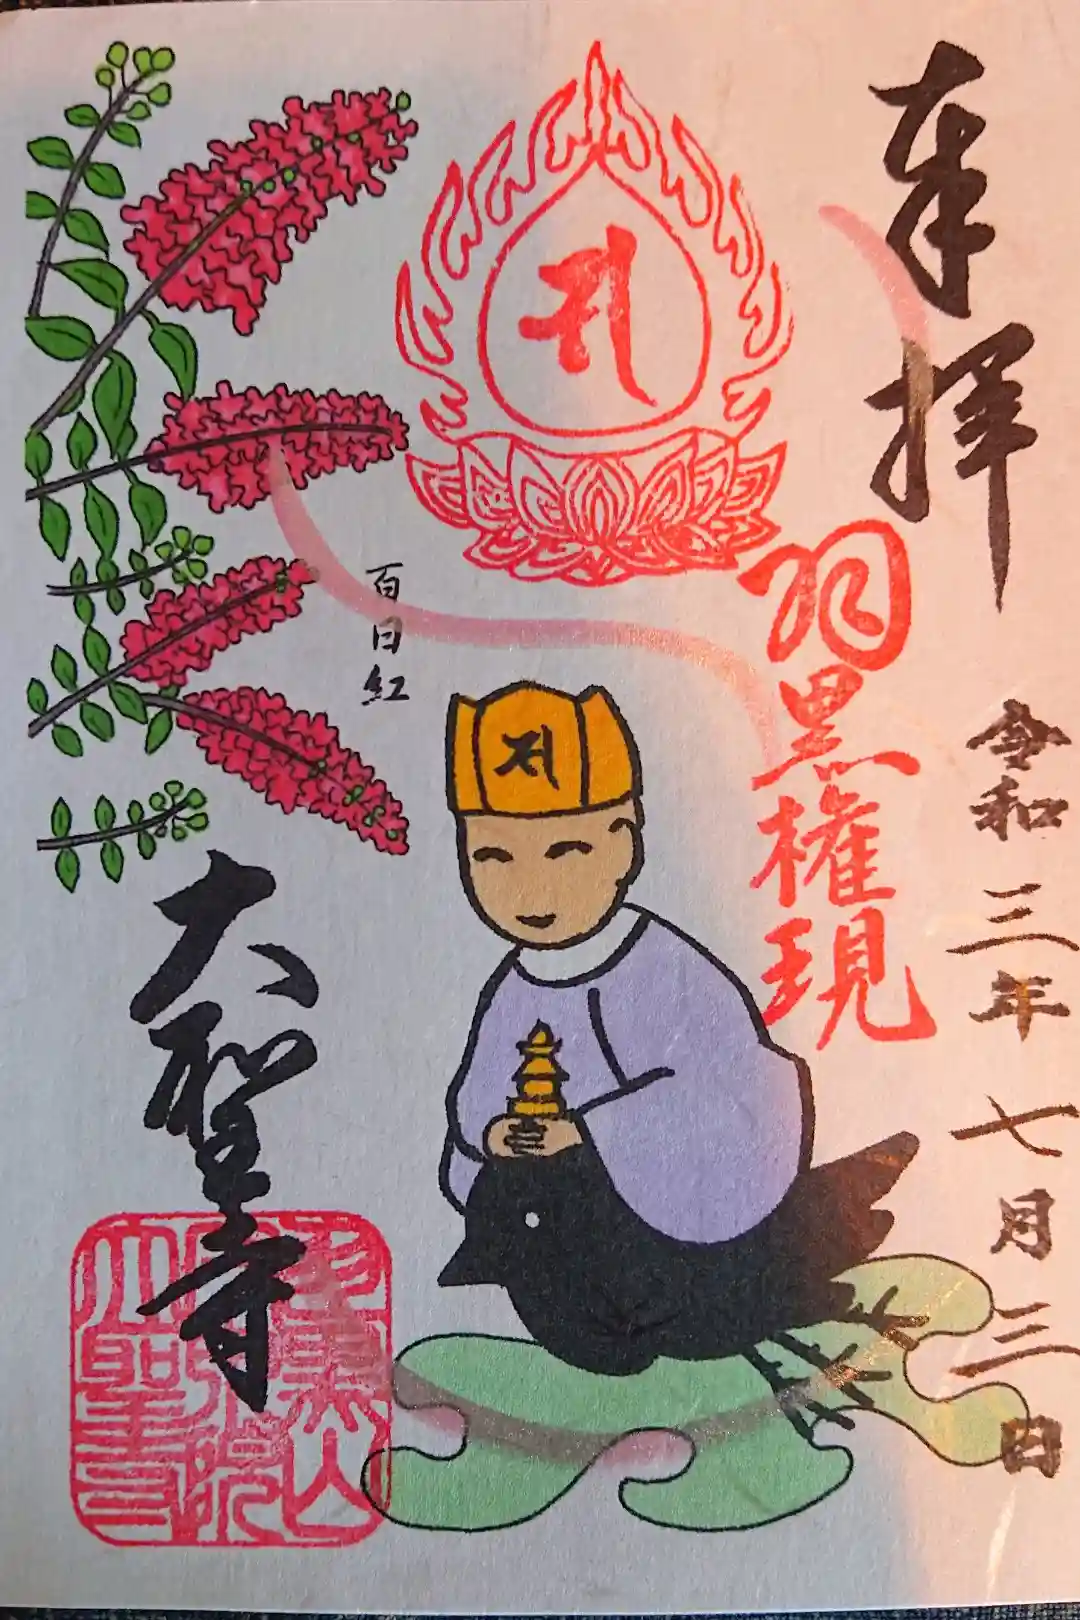 奉拝
令和三年七月三日
羽黒権現
百日紅
大聖寺